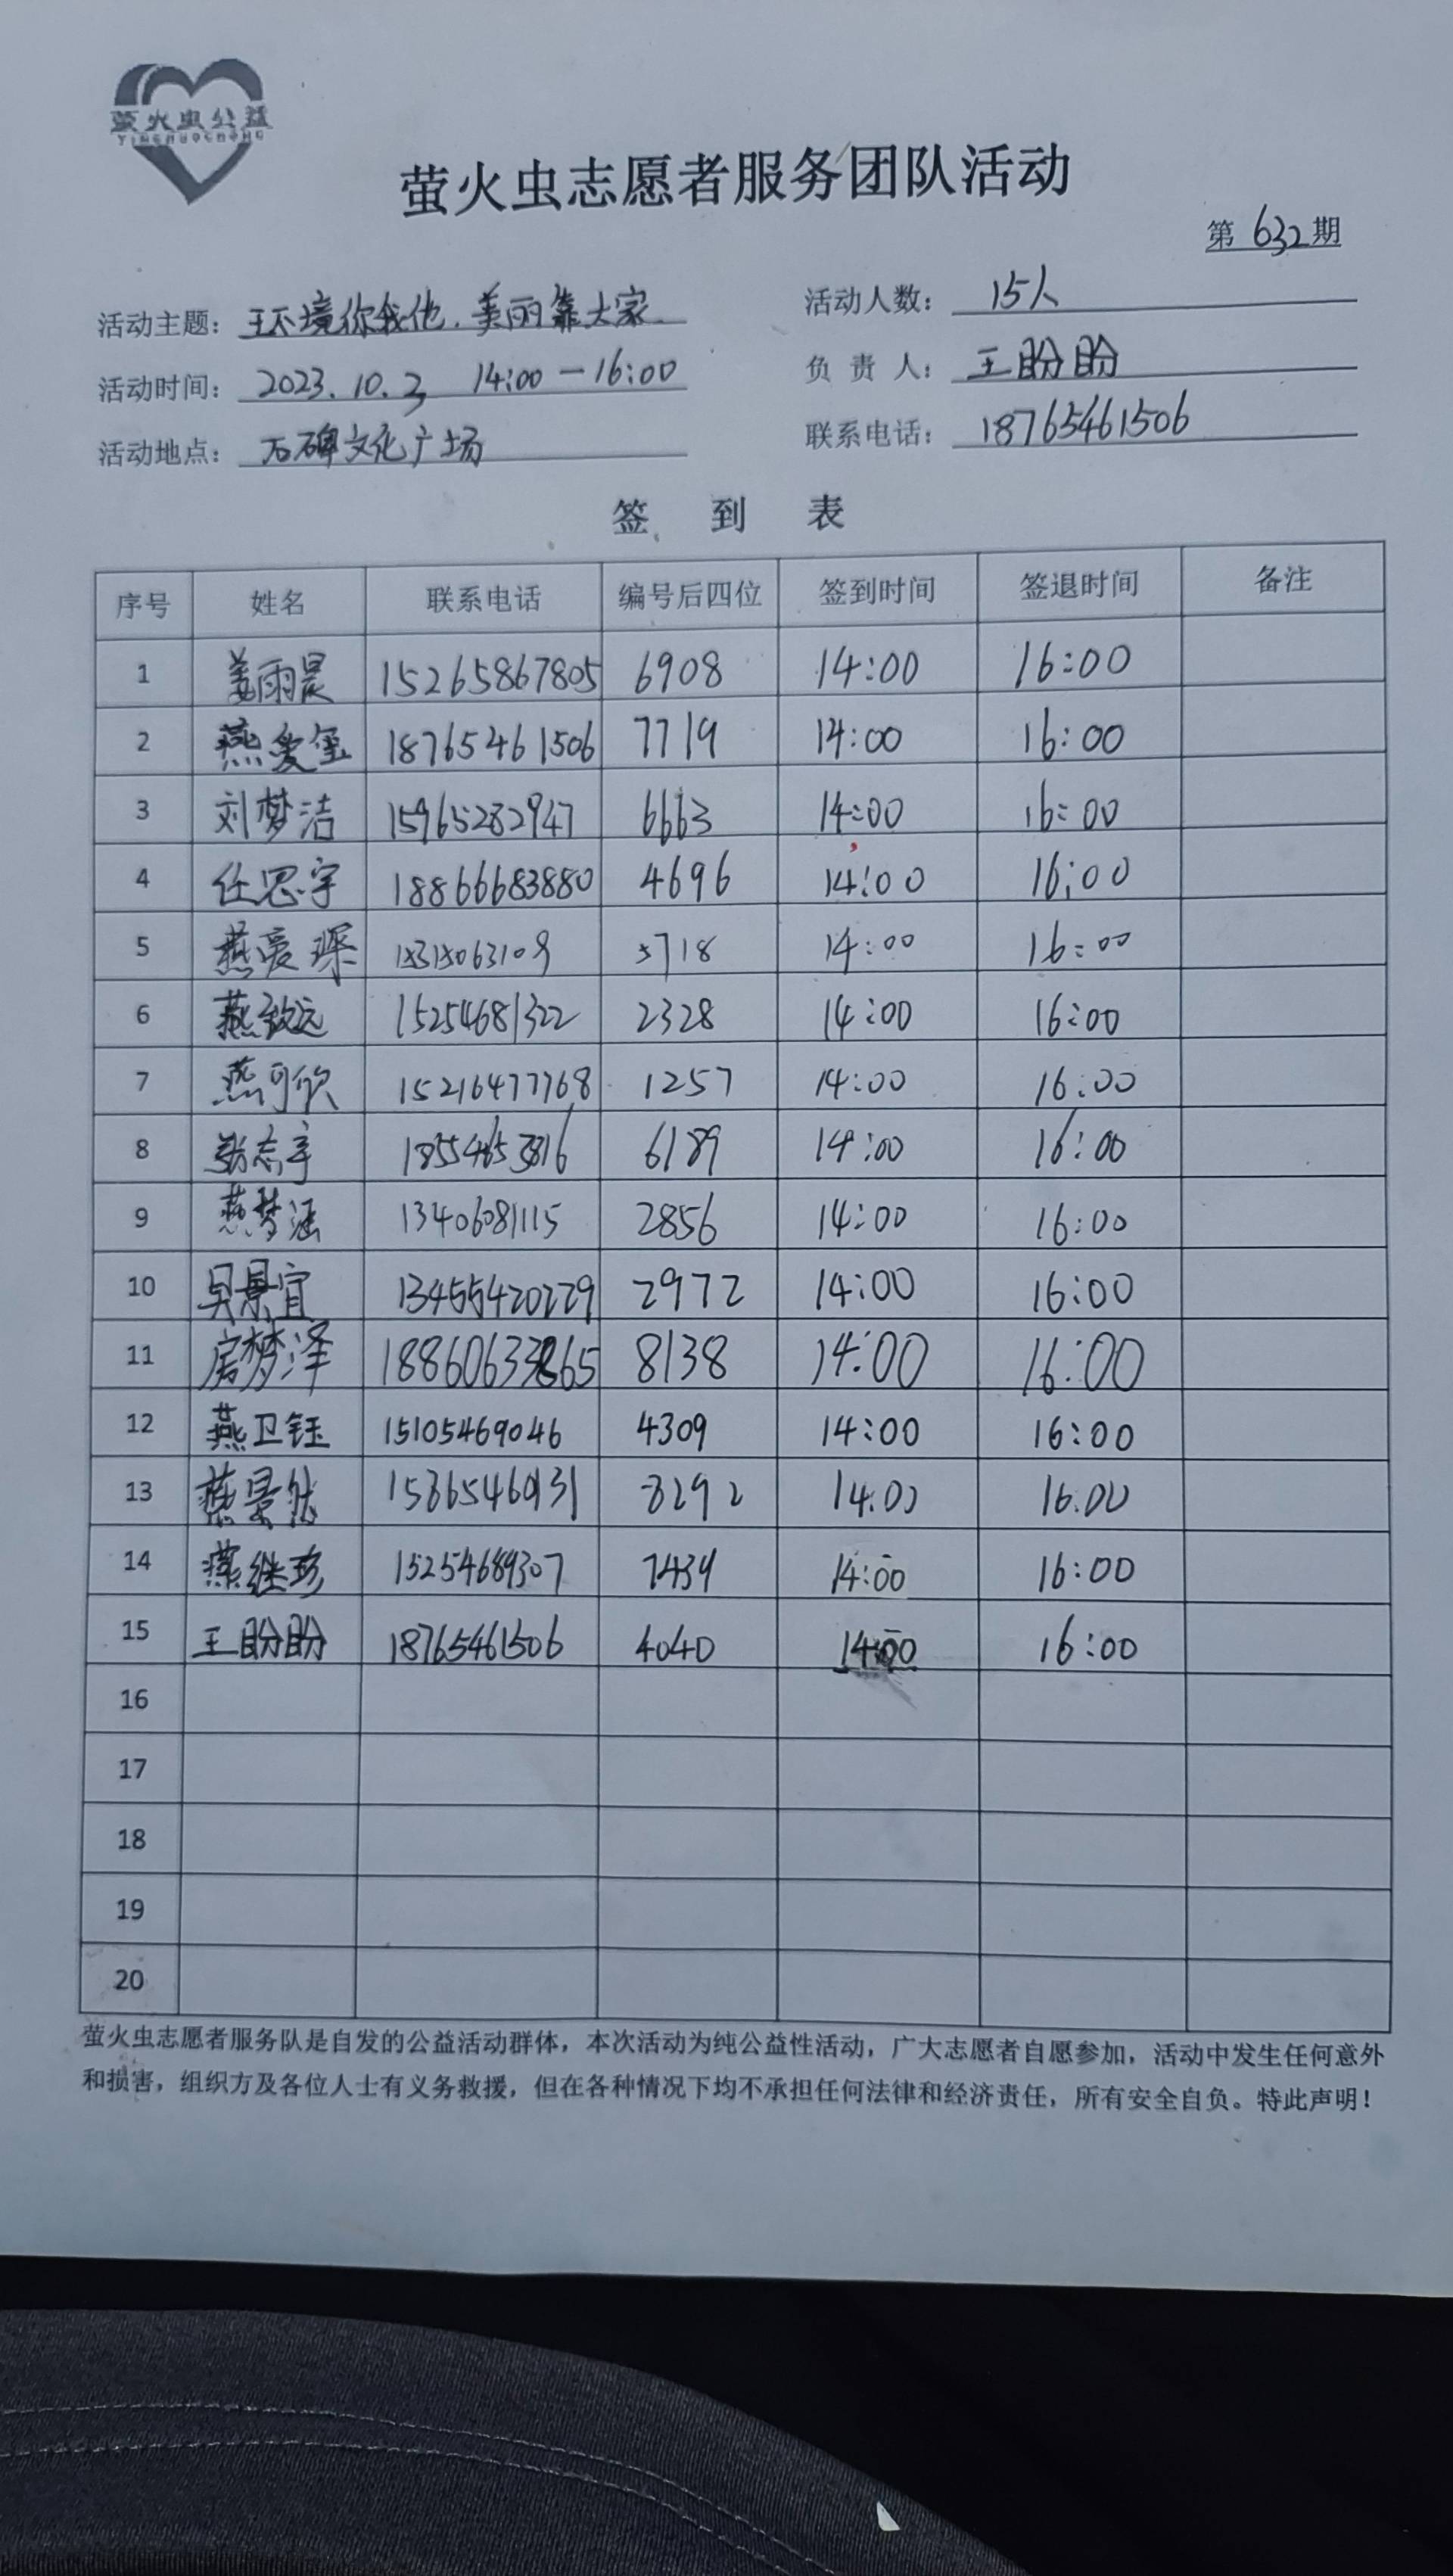 萤火虫公益
YINGHUOCHONG
萤火虫志愿者服务团队活动
第 632 期
活动主题：环境你我他，美丽靠大家
活动人数：15人
活动时间：2023.10.3 14:00－16:00
负责人：王盼盼
活动地点：石碑文化广场
联系电话：18765461506
签到表
序号 姓名 联系电话 编号后四位 签到时间 签退时间 备注
1 姜雨晨 15265867805 6908 14:00 16:00
2 燕爱玺 18765461506 7719 14:00 16:00
3 刘梦洁 15965282947 6663 14:00 16:00
4 任思宇 18866683880 4696 14:00 16:00
5 燕爱琛 5718 14:00 16:00
6 燕致远 15254681322 2328 14:00 16:00
7 燕可欣 15216477768 1257 14:00 16:00
8 张志宇 6189 14:00 16:00
9 燕梦涵 13406081115 2856 14:00 16:00
10 吴景宜 13455420229 2972 14:00 16:00
11 房梦泽 8138 14:00 16:00
12 燕卫钰 15105469046 4309 14:00 16:00
13 燕景然 8292 14:00 16:00
14 燕继珍 15254689307 7439 14:00 16:00
15 王盼盼 18765461506 4040 14:00 16:00
16
17
18
19
20
萤火虫志愿者服务队是自发的公益活动群体，本次活动为纯公益性活动，广大志愿者自愿参加，活动中发生任何意外
和损害，组织方及各位人士有义务救援，但在各种情况下均不承担任何法律和经济责任，所有安全自负。特此声明！